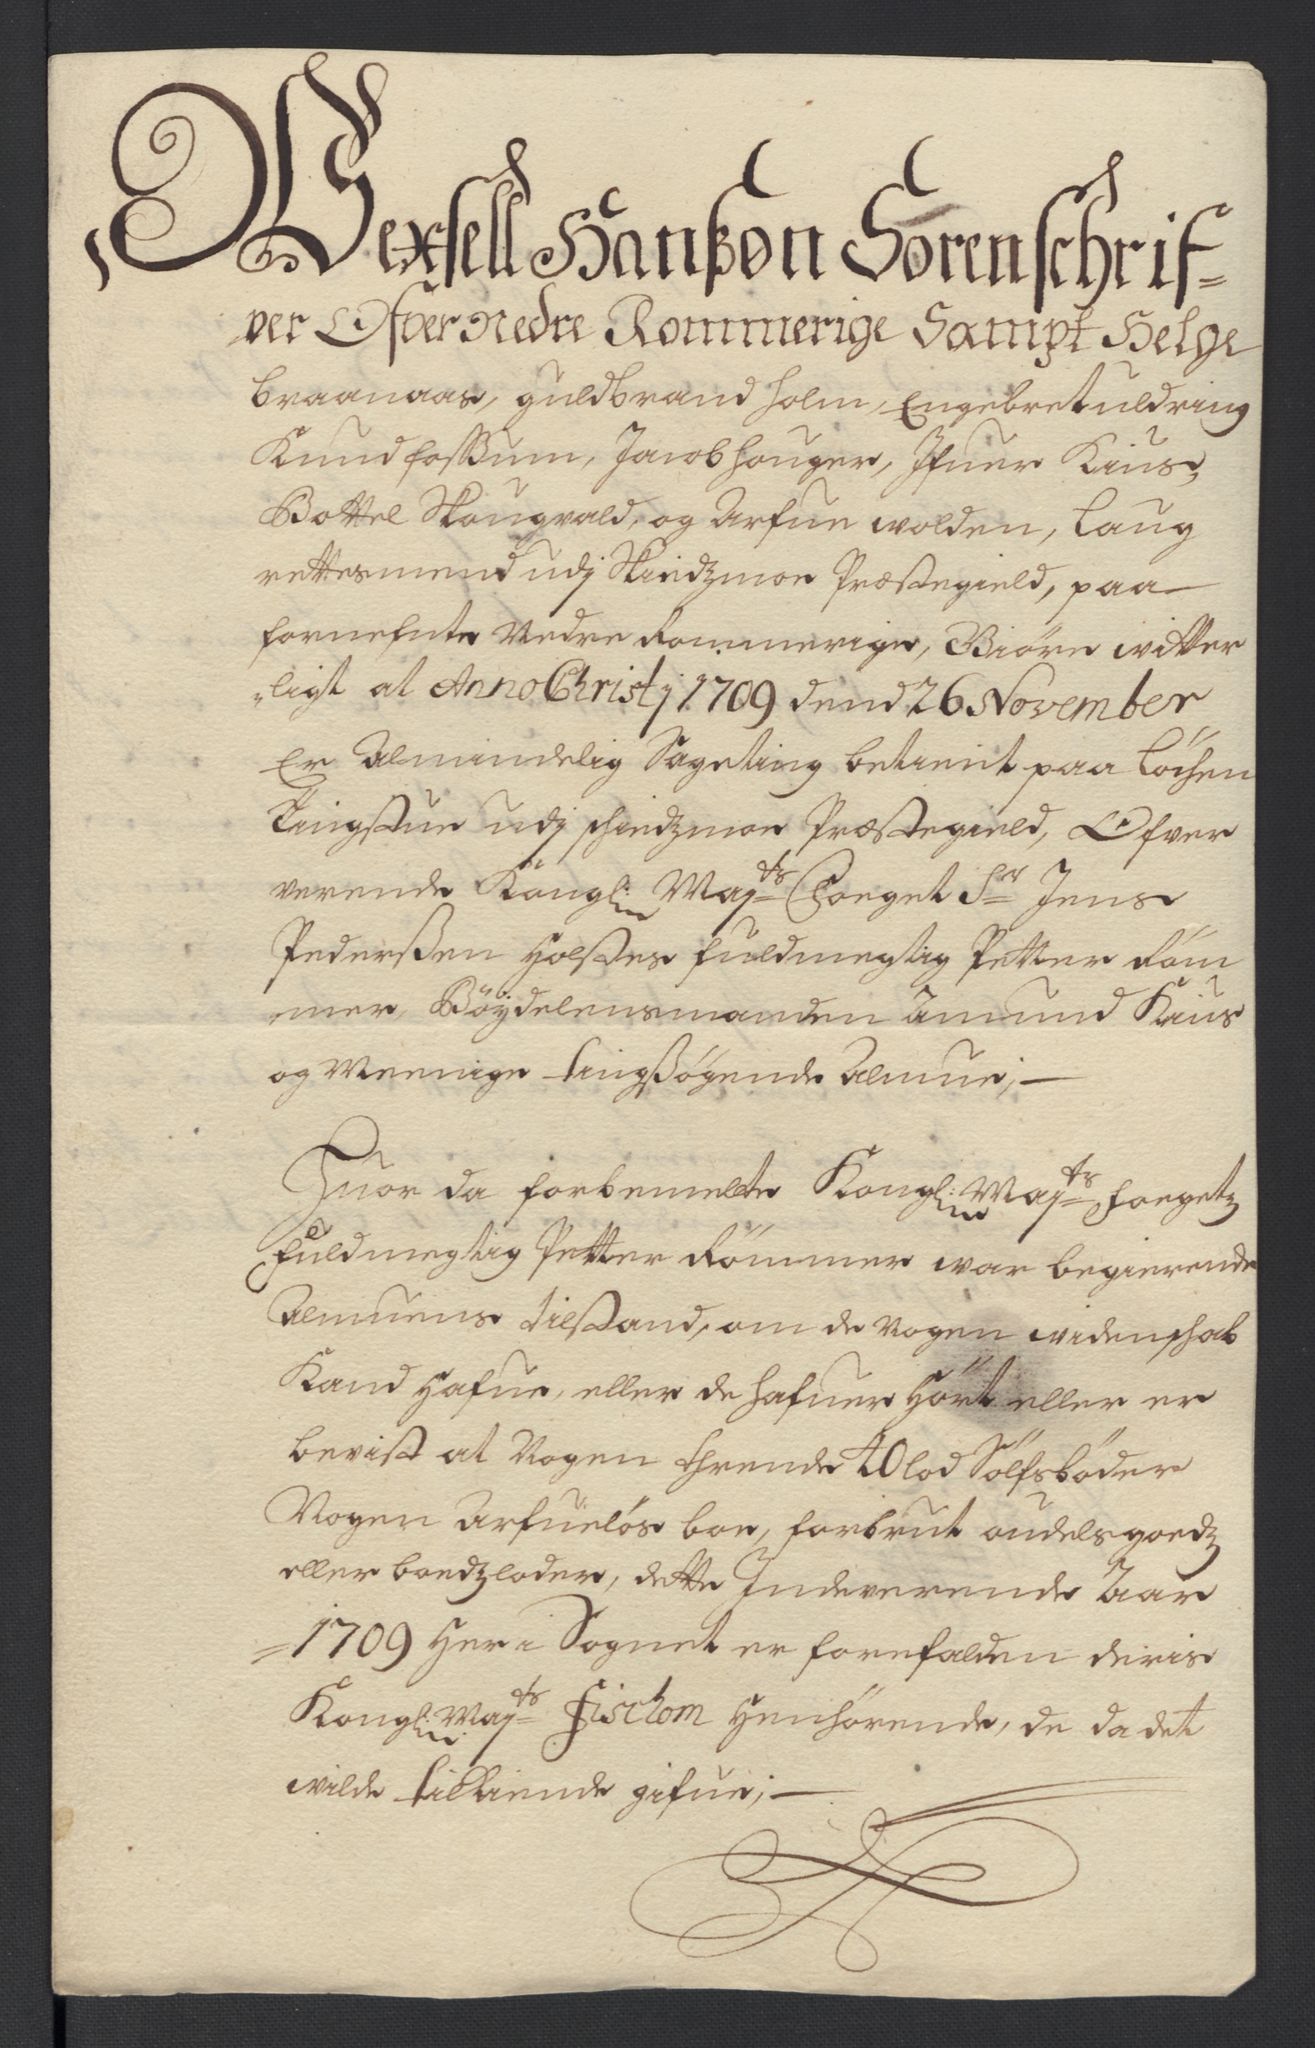 Wexsell Hanßøn Sorenschrif-
ver Ofver Nedre Rommerige Sampt Helge
braanaas, guldbrand holm, Engebret uldring
Knud foßum, Jacob houger, Ifuer Kius,
Bottel Skougvald, og Arfue wolden, Laug
rettesmend udj Skiedzmoe Præstegield, paa
fornefnte Nedre Rommerige, Giøre witter
ligt at Anno Christj 1709 dend 26 November
Er Almindelig Sageting betient paa Løchen
Tingstue udj schiedzmoe Præstegield, Ofver
verende Kongl: Mayts Foeget Sr Jens
Pederßen Holstes fuldmegtig Petter Røm
mer, Böÿdelensmanden Amund Kius
og Meenige tingßøgende Almue,

Huor da forbemelte Kongl: Mayts foegetz
fuldmegtig Petter Rømmer war begierende
Almuens tilstand, om de Nogen widenschab
Kand Hafue, eller de hafuer Hørt eller er
bevist at Nogen thrende 40 lod Sølfsbøder
Nogen Arfueløs boe, forbrut oudelsgoedz
eller boedzloder, dette Indeverende Aar
1709 Her i Sognet er forefalden deris
Kongl: Mayts Fischom Henhørende, de da det
wilde tilkiende gifue;